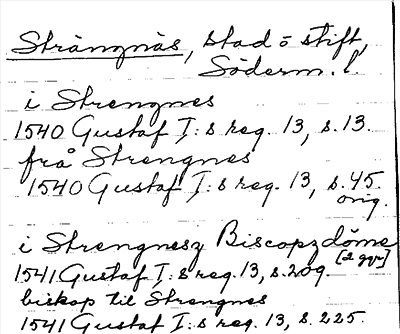 Strängnäs, stad o stift,
Söderm. l.
i Strengnes
1540 Gustaf I:s reg. 13, s. 13.
frå Strengnes
1540 Gustaf I:s reg. 13, s. 45.
orig.
i Strengnesz Biscopzdöme
[2 ggr]
1541 Gustaf I:s reg. 13, s. 209.
biskop til Strengnes
1541 Gustaf I:s reg. 13, s. 225.